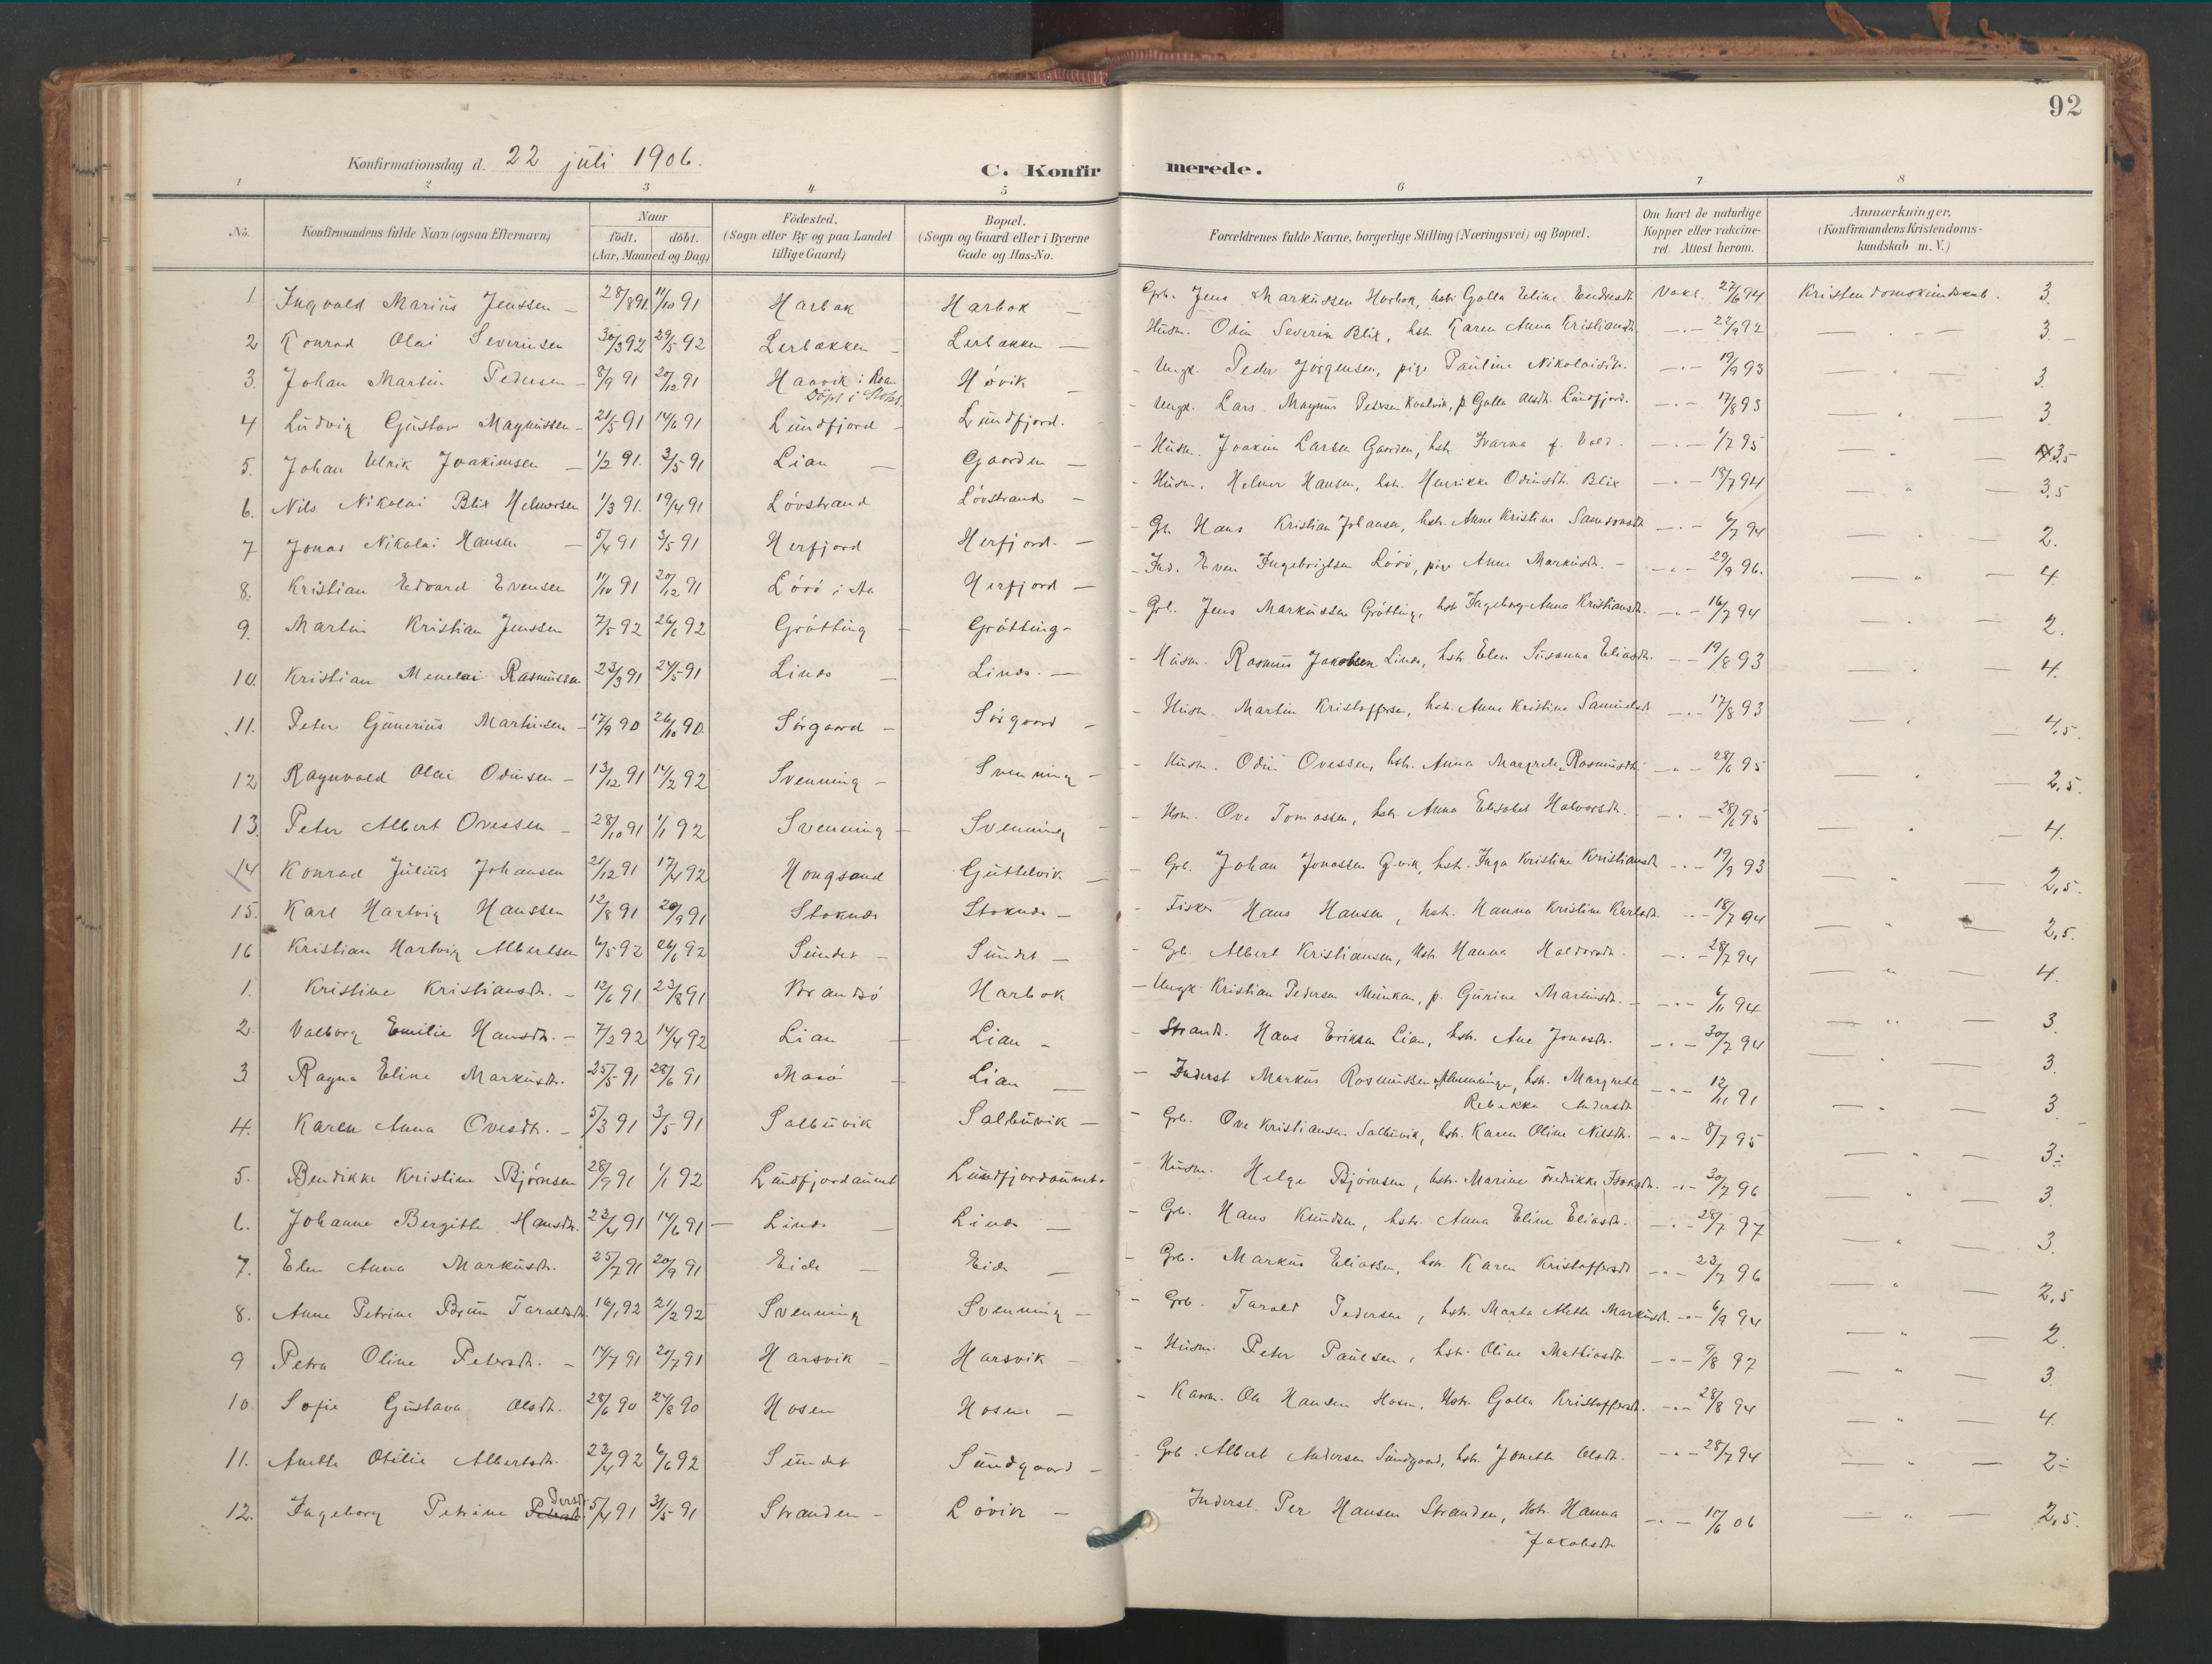 92
Konfirmationsdag d. 22 juli 1906.
C. Konfir merede.
1 2 3 4 5 6 7 8
No.
Konfirmandens fulde Navn (ogsaa Efternavn)
Naar
födt. döbt.
(Aar, Maaned og Dag)
Födested.
(Sogn eller By og paa Landet
tillige Gaard)
Bopæl.
(Sogn og Gaard eller i Byerne
Gade og Hus-No.
Forældrenes fulde Navne, borgerlige Stilling (Næringsvei) og Bopæl.
Om havt de naturlige
Kopper eller vakcine-
ret. Attest herom.
Anmærkninger,
(Konfirmandens Kristendoms-
kundskab m. V.)
1. Ingvald Marius Jenssen – 28/8 91 11/10 91 Harbak Harbak – Grb. Jens Markussen Harbak, hstr. Golla Eline Vakc. 27/6 94 Kristendomskundskab. 3.
2 Konrad Olai Severinsen 30/3 92 29/5 92 Lerbakken – Lerbakken – Husm. Odin Severin Blix, hst. Karen Anna Kristiansdt. –"– 22/9 92 3. –
3. Johan Martin Pedersen – 8/9 91 20/12 91 Haavik i Roan Høvik – Ungk. Peder Jörgensen, pige Pauline Nikolaisdt. –"– 19/9 93 3.
Döpt i Stoks.
4 Ludvig Gustav Magnussen – 21/5 91 14/6 91 Lundfjord – Lundfjord. – Ungk. Lars Magnus Petersen, p. Golla Olsdt. Lundfjord. –"– 17/8 93 3
5. Johan Ulrik Joakimsen – 1/2 91. 3/5 91 Lian – Gaarden – Husm. Joakim Larsen Gaarden, hst. –"– 1/7 95 3,5
6. Nils Nikolai Blix Helmersen 1/3 91. 19/4 91 Lövstrand Lövstrand – Husm. Helmer Hansen, hst. Henrikke Odinsdt. Blix –"– 18/7 94 3,5
7 Jonas Nikolai Hansen – 5/4 91 3/5 91 Herfjord Herfjord. – Gb. Hans Kristian Johansen, hstr. Anne Kristine Samsonsdt –"– 6/7 94 2.
8. Kristian Edvard Evensen 11/10 91 20/12 91 Lövö i Aa Herfjord – Ind. Even Ingebrigtsen Lövö, pige Anne Markusdt. – –"– 29/9 96. 4.
9. Martin Kristian Jenssen 7/5 92 26/6 92 Gråtting – Gråtting – Grb. Jens Markussen Gråtting, hst Ingeborg Anna Kristiansdt. –"– 16/7 94 2.
10. Kristian Menelai Rasmussen 23/3 91 24/5 91 Linds – Linds. – Husm. Rasmus Jakobsen Linds, hstr. Elen Susanna Eliasdt. –"– 19/8 93 4.
11. Peter Gunerius Martinsen – 17/9 90 26/10 90. Sörgaard – Sörgaard – Husm. Martin Kristoffersen, hst. Anne Kristine Samuelsdt –"– 17/8 93 4,5.
12 Ragnvald Olai Odinsen – 13/12 91 14/2 92 Svenning – Svenning – Husm. Odin Ovessen, hstr. Anna Margrete Rasmusdt. –"– 28/6 95 2,5.
13. Peter Albert Ovessen – 28/10 91 1/1 92 Svenning – Svenning – Hsm. Ove Tomassen, hstr. Anna Elisabet Halvorsdt. –"– 28/6 95 4.
14 Konrad Julius Johansen 21/12 91 17/4 92 Hongsand Guttelvik – Grb. Johan Jonassen G.vik, hst. Inga Kristine Kristiansdt –"– 19/9 93 2,5.
15. Karl Hartvig Hanssen 12/8 91 20/9 91 Stoknds Stoknds – Fisker Hans Hansen, hstr. Hanna Kristine Karlsdt. –"– 18/7 94 2,5.
16 Kristian Hartvig Albertsen 6/5 92 26/6 92 Sundet – Sundet – Gb. Albert Kristiansen, Hstr. Hanna Haldorsdt. –"– 28/7 94 4.
1. Kristine Kristiansdt. – 12/6 91 23/8 91 Brandsö Harbak – Ungk. Kristian Pedersen Munkan, p. Gurine Martinsdt. – –"– 6/11 94 3.
2. Valborg Emilie Hansdt. – 7/2 92 14/4 92 Lian – Lian – Strands. Hans Eriksen Lian, hst. Ane Jonasdt. –"– 30/7 94 3.
3 Ragna Eline Markusdt. 25/5 91 28/6 91 Masö – Lian – Inderst Markus Rasmussen, hst. Margrete –"– 12/11 91 3.
Rebekka Andersdt
4. Karen Anna Ovesdt. – 5/3 91 3/5 91 Salbuvik Salbuvik – Grb. Ove Kristiansen Salbuvik, hst. Karen Oline Nilsdt. –"– 8/7 95 3÷
5. Bendikke Kristine Bjørnsen 28/9 91 1/1 92 Lundfjordaunet Lundfjordaunet. – Husm. Helge Bjørnsen, hstr. Marine Fredrikke Isaksdt. –"– 30/7 96 3.
6. Johanne Bergitte Hansdt. 23/4 91 14/6 91 – Linds – Linds – Grb. Hans Knudsen, hstr. Anna Eline Eliasdt. –"– 28/7 97 3.
7. Elen Anna Markusdt. 25/7 91 20/9 91 Eide – Eide – Grb. Markus Eliassen, hst. Karen Kristoffersdt –"– 23/7 96 2,5
8. Anne Petrine Brun Taraldsdt. 16/1 92 21/2 92 Svenning Svenning – Grb. Tarald Pedersen, hst. Marta Aletta Markusdt. –"– 6/9 94 2.
9 Petra Oline Petersdt. – 14/7 91 20/7 91 Harsvik – Harsvik – Husm. Peter Paulsen, hst. Oline Mattiasdt. –"– 9/8 97 3.
10 Sofie Gustava Olsdt. 28/6 90 24/8 90 Hosen Hosen – Ola Hansen Hosen, Hstr. Golla Kristoffersdt. –"– 28/8 94 4.
11. Anette Otilie Albertsdt. 23/4 92 6/6 92 Sundet Sundgaard – Grb. Albert Andersen Sundgaard, hst. Jonetta Olsdt. –"– 28/7 94 2÷
12. Ingeborg Petrine Persdt. 5/4 91 31/5 91 Stranden – Lövik – Inderst. Per Hansen Stranden, Hstr. Hanna –"– 15/6 06 2,5.
Jakobsdt